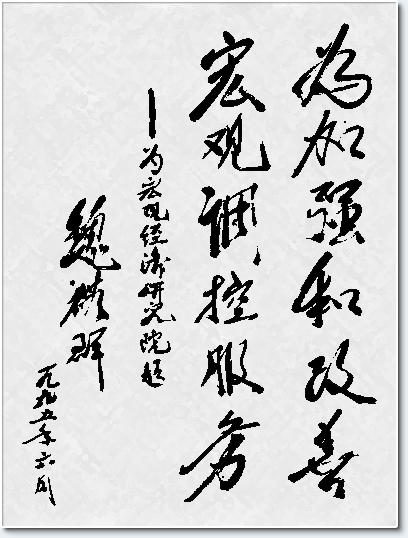 为加强和改善
宏观调控服务
—为宏观经济研究院题
魏礼群
一九九五年六月